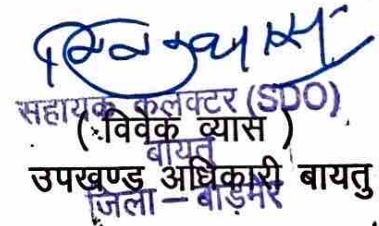 सहायक कलक्टर (SDO)
( विवेक व्यास )
बायतु
उपखण्ड अधिकारी बायतु
जिला – बाड़मेर